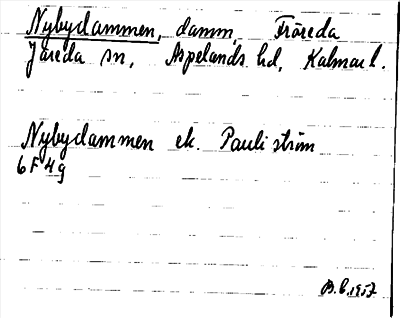 Nybydammen, damm, Fröreda
Järeda sn, Aspelands hd, Kalmar l.
Nybydammen ek. Pauliström
6 F 4 g
B.E. 1957